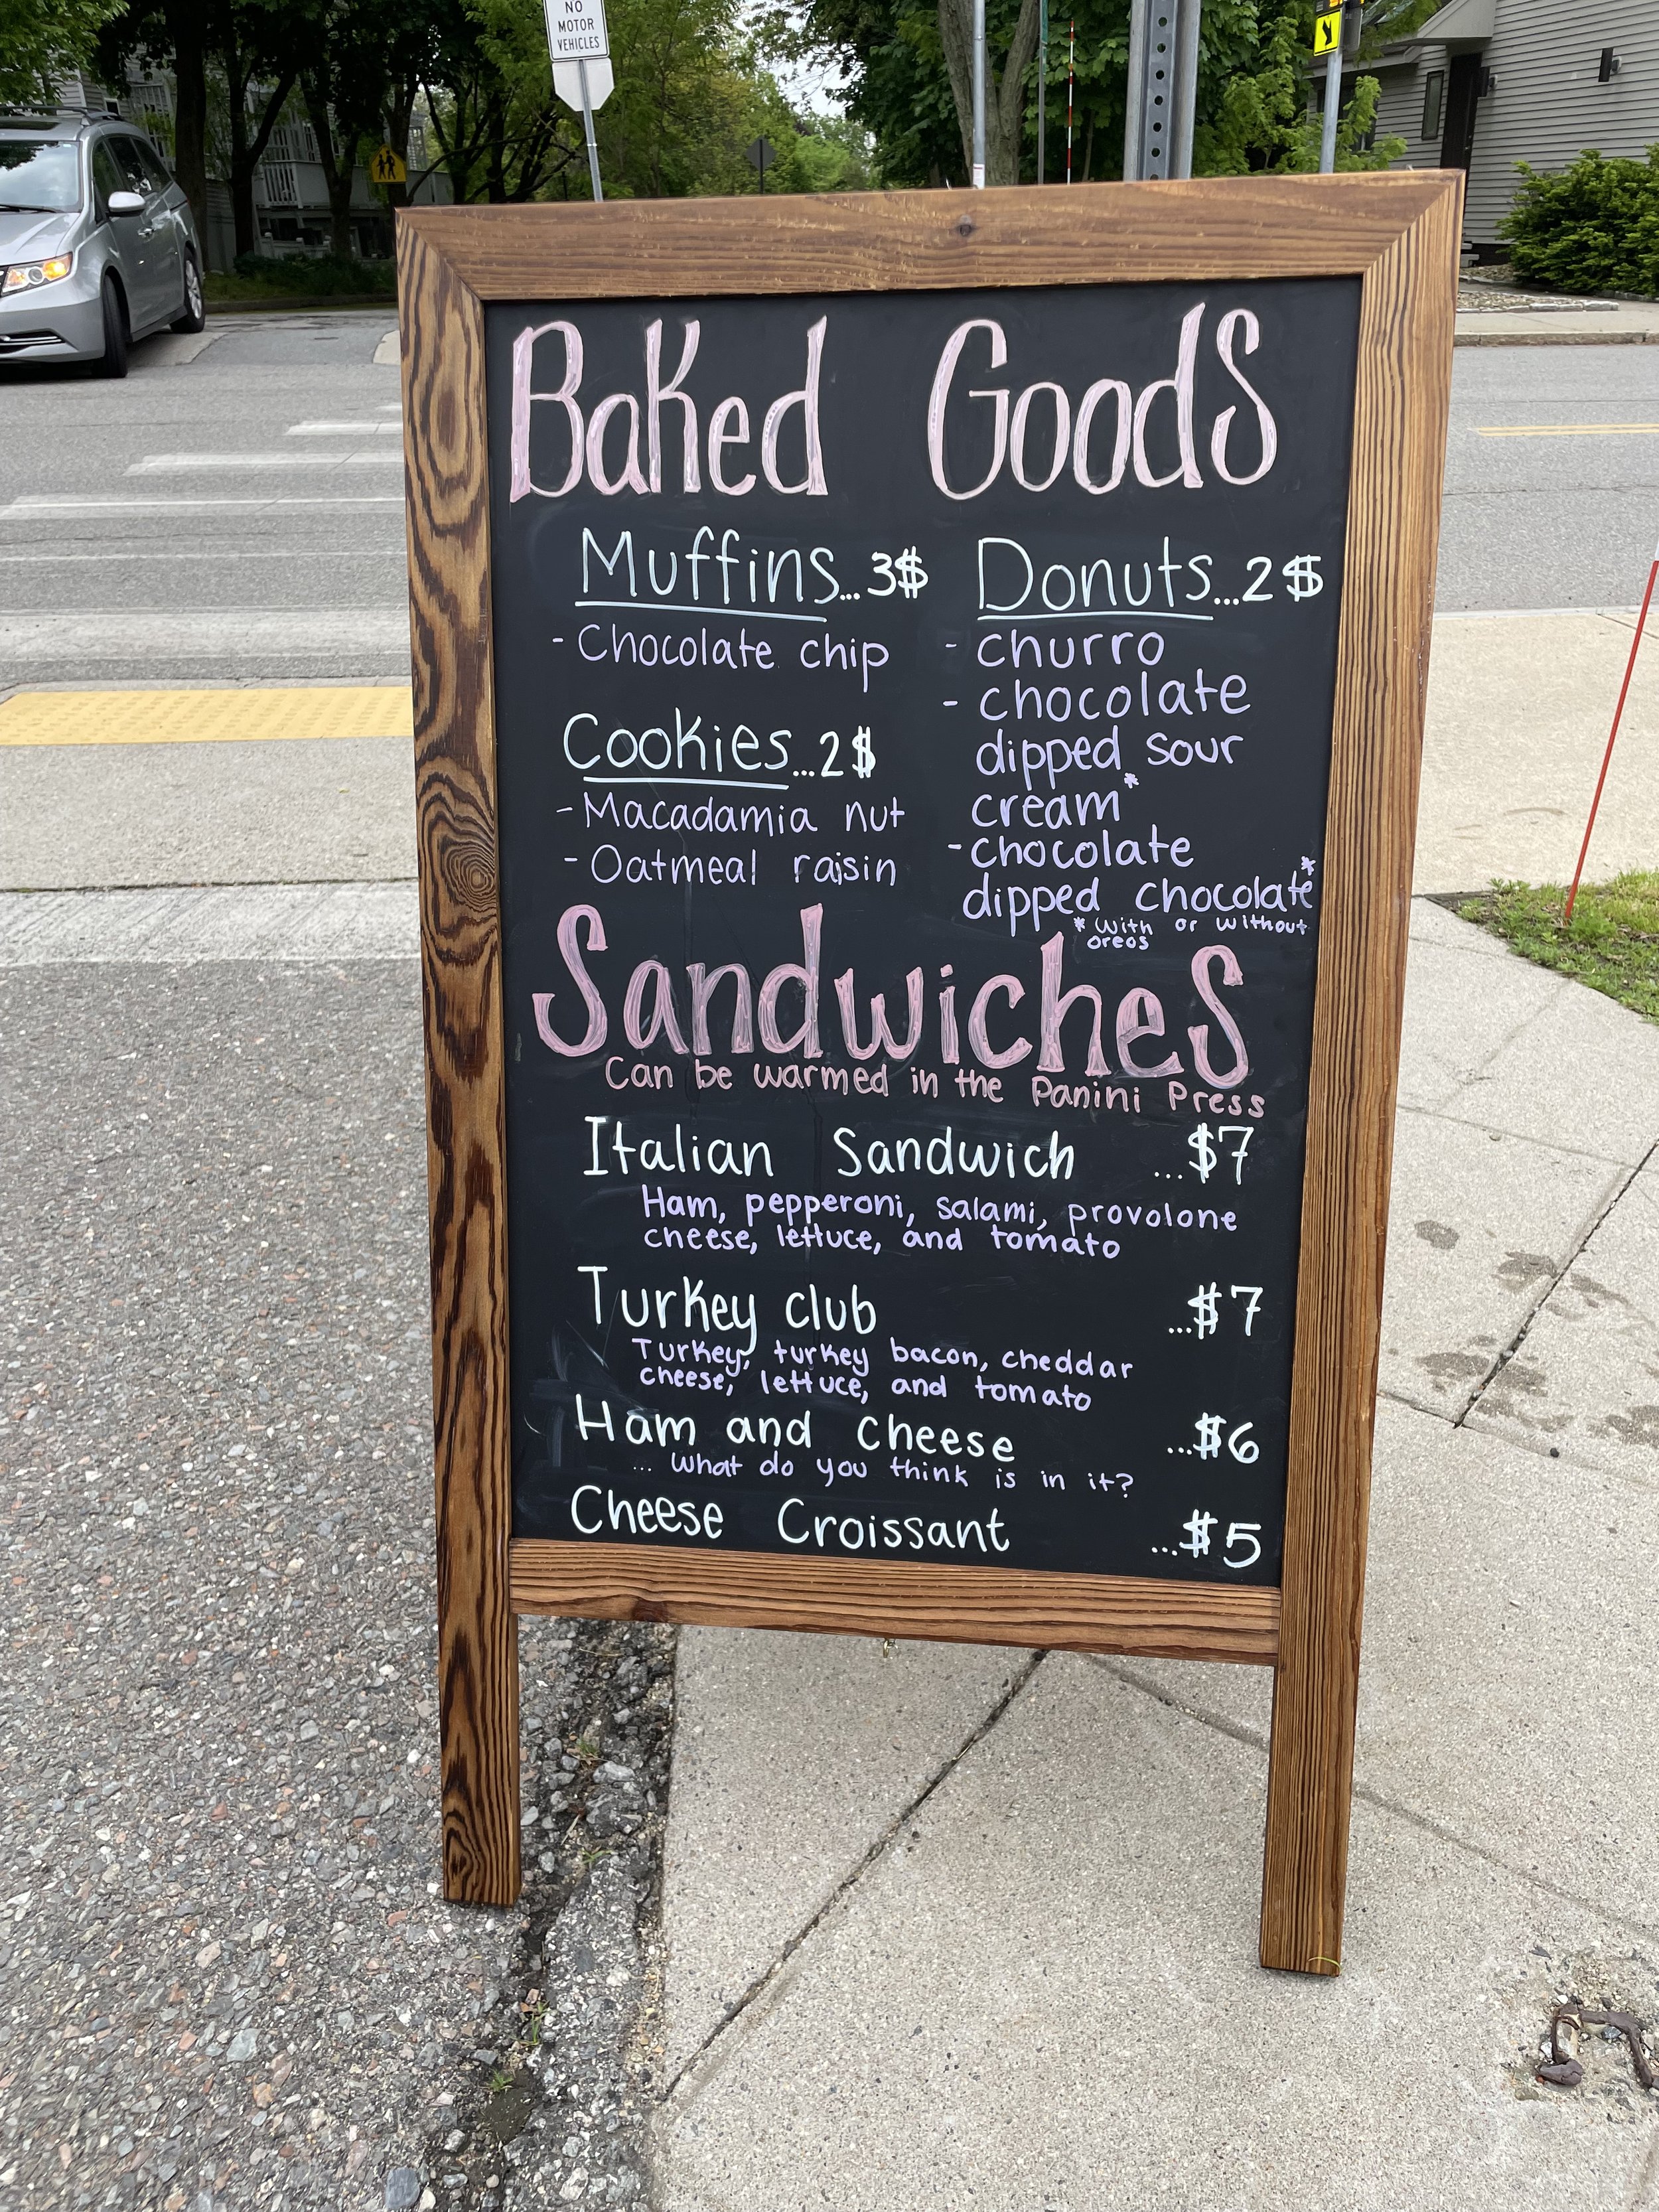 NO
MOTOR
VEHICLES
Baked Goods
Muffins...3$
- Chocolate chip
Cookies...2$
- Macadamia nut
- Oatmeal raisin
Donuts...2$
- churro
- chocolate
dipped sour
cream*
- chocolate
dipped chocolate*
* with or without
oreos
Sandwiches
Can be warmed in the Panini Press
Italian Sandwich ...$7
Ham, pepperoni, salami, provolone
cheese, lettuce, and tomato
Turkey club ...$7
Turkey, turkey bacon, cheddar
cheese, lettuce, and tomato
Ham and cheese ...$6
... what do you think is in it?
Cheese Croissant ...$5